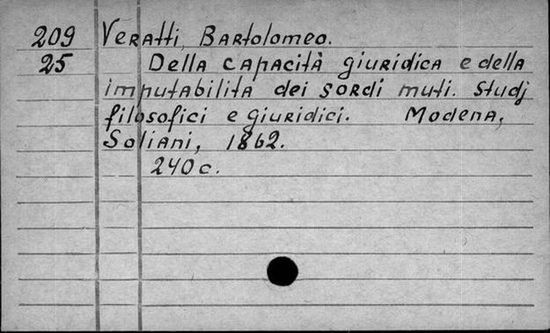 209 Veratti, Bartolomeo.
25 Della capacità giuridica e della
imputabilita dei sordi muti. Studj
filosofici e giuridici. Modena,
Soliani, 1862.
240 c.